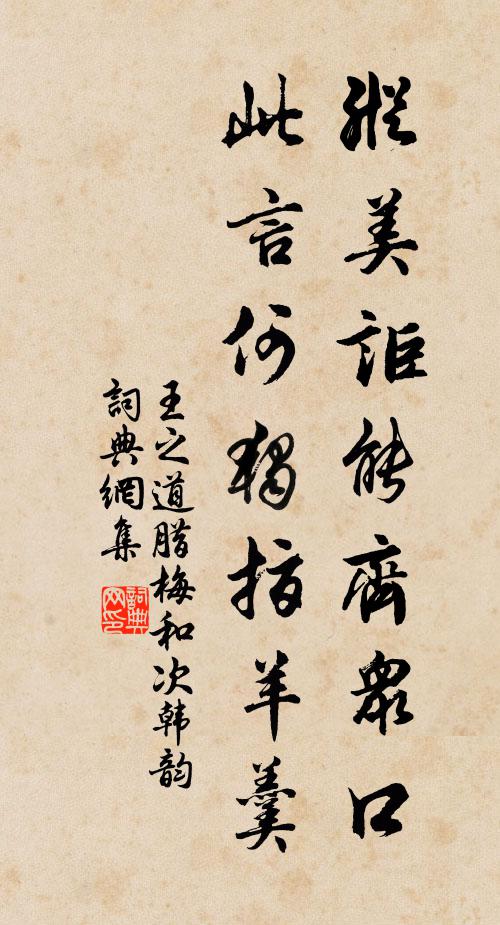 縱美詎能齊眾口
此言何獨指羊羹
王之道腊梅和次韩韵
詞典網集
詞典网印